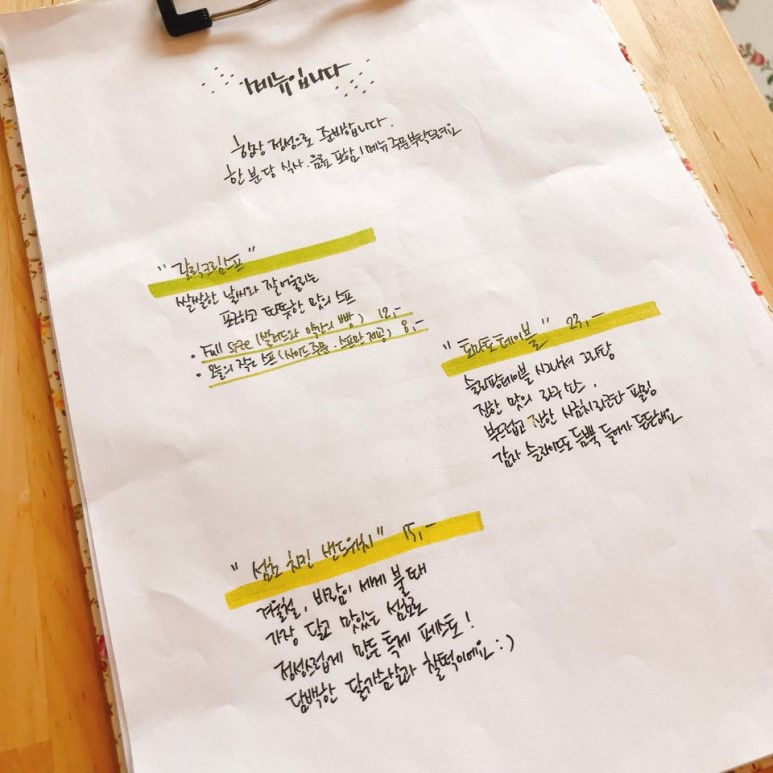 메뉴입니다
항상 정성으로 준비합니다.
한 분 당 식사·음료 포함 1메뉴 주문부탁드려요
"갈릭크림스프"
쌀쌀한 날씨와 잘 어울리는
포근하고 따뜻한 맛의 스프
• Full size (샐러드와 약간의 빵) 12,-
• 오늘의 작은 스프(사이드 주문·스프만 제공) 8,-
"토마토테이블" 23,-
슬리핑테이블 시그니처 그라탕
진한 맛의 라구 소스,
부드럽고 진한 시금치리코타 필링
감자 슬라이스도 듬뿍 들어가 든든해요
"섬초 치킨 샌드위치" 15,-
겨울철, 바람이 세게 불 때
가장 달고 맛있는 섬초로
정성스럽게 만든 특제 페스토!
담백한 닭가슴살과 찰떡이에요 :)